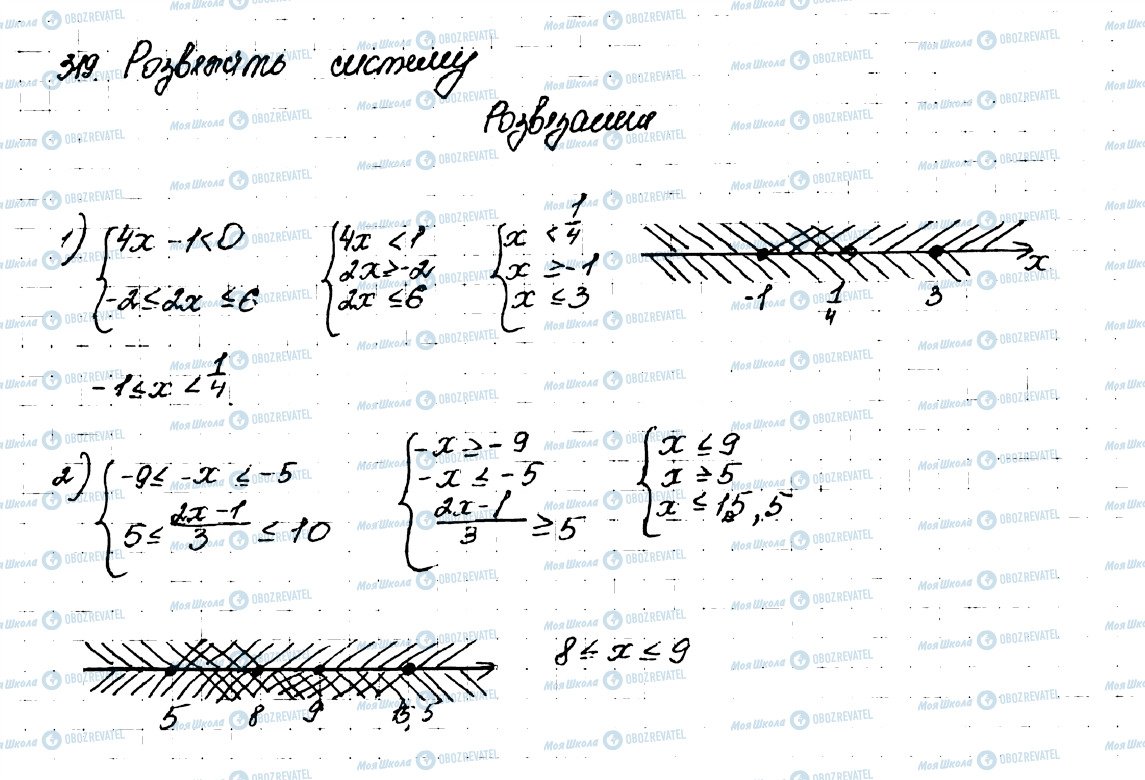 319. Розвяжіть систему
Розвязання
1) {4x - 1 < 0 {4x < 1 {x < 1/4
-2 ≤ 2x ≤ 6 2x ≥ -2 x ≥ -1
2x ≤ 6 x ≤ 3
-1 1/4 3 x
-1 ≤ x < 1/4
2) {-9 ≤ -x ≤ -5 {-x ≥ -9 {x ≤ 9
5 ≤ (2x - 1)/3 ≤ 10 -x ≤ -5 x ≥ 5
(2x - 1)/3 ≥ 5 x ≤ 15,5
5 8 9 15,5
8 ≤ x ≤ 9
МояШкола OBOZREVATEL